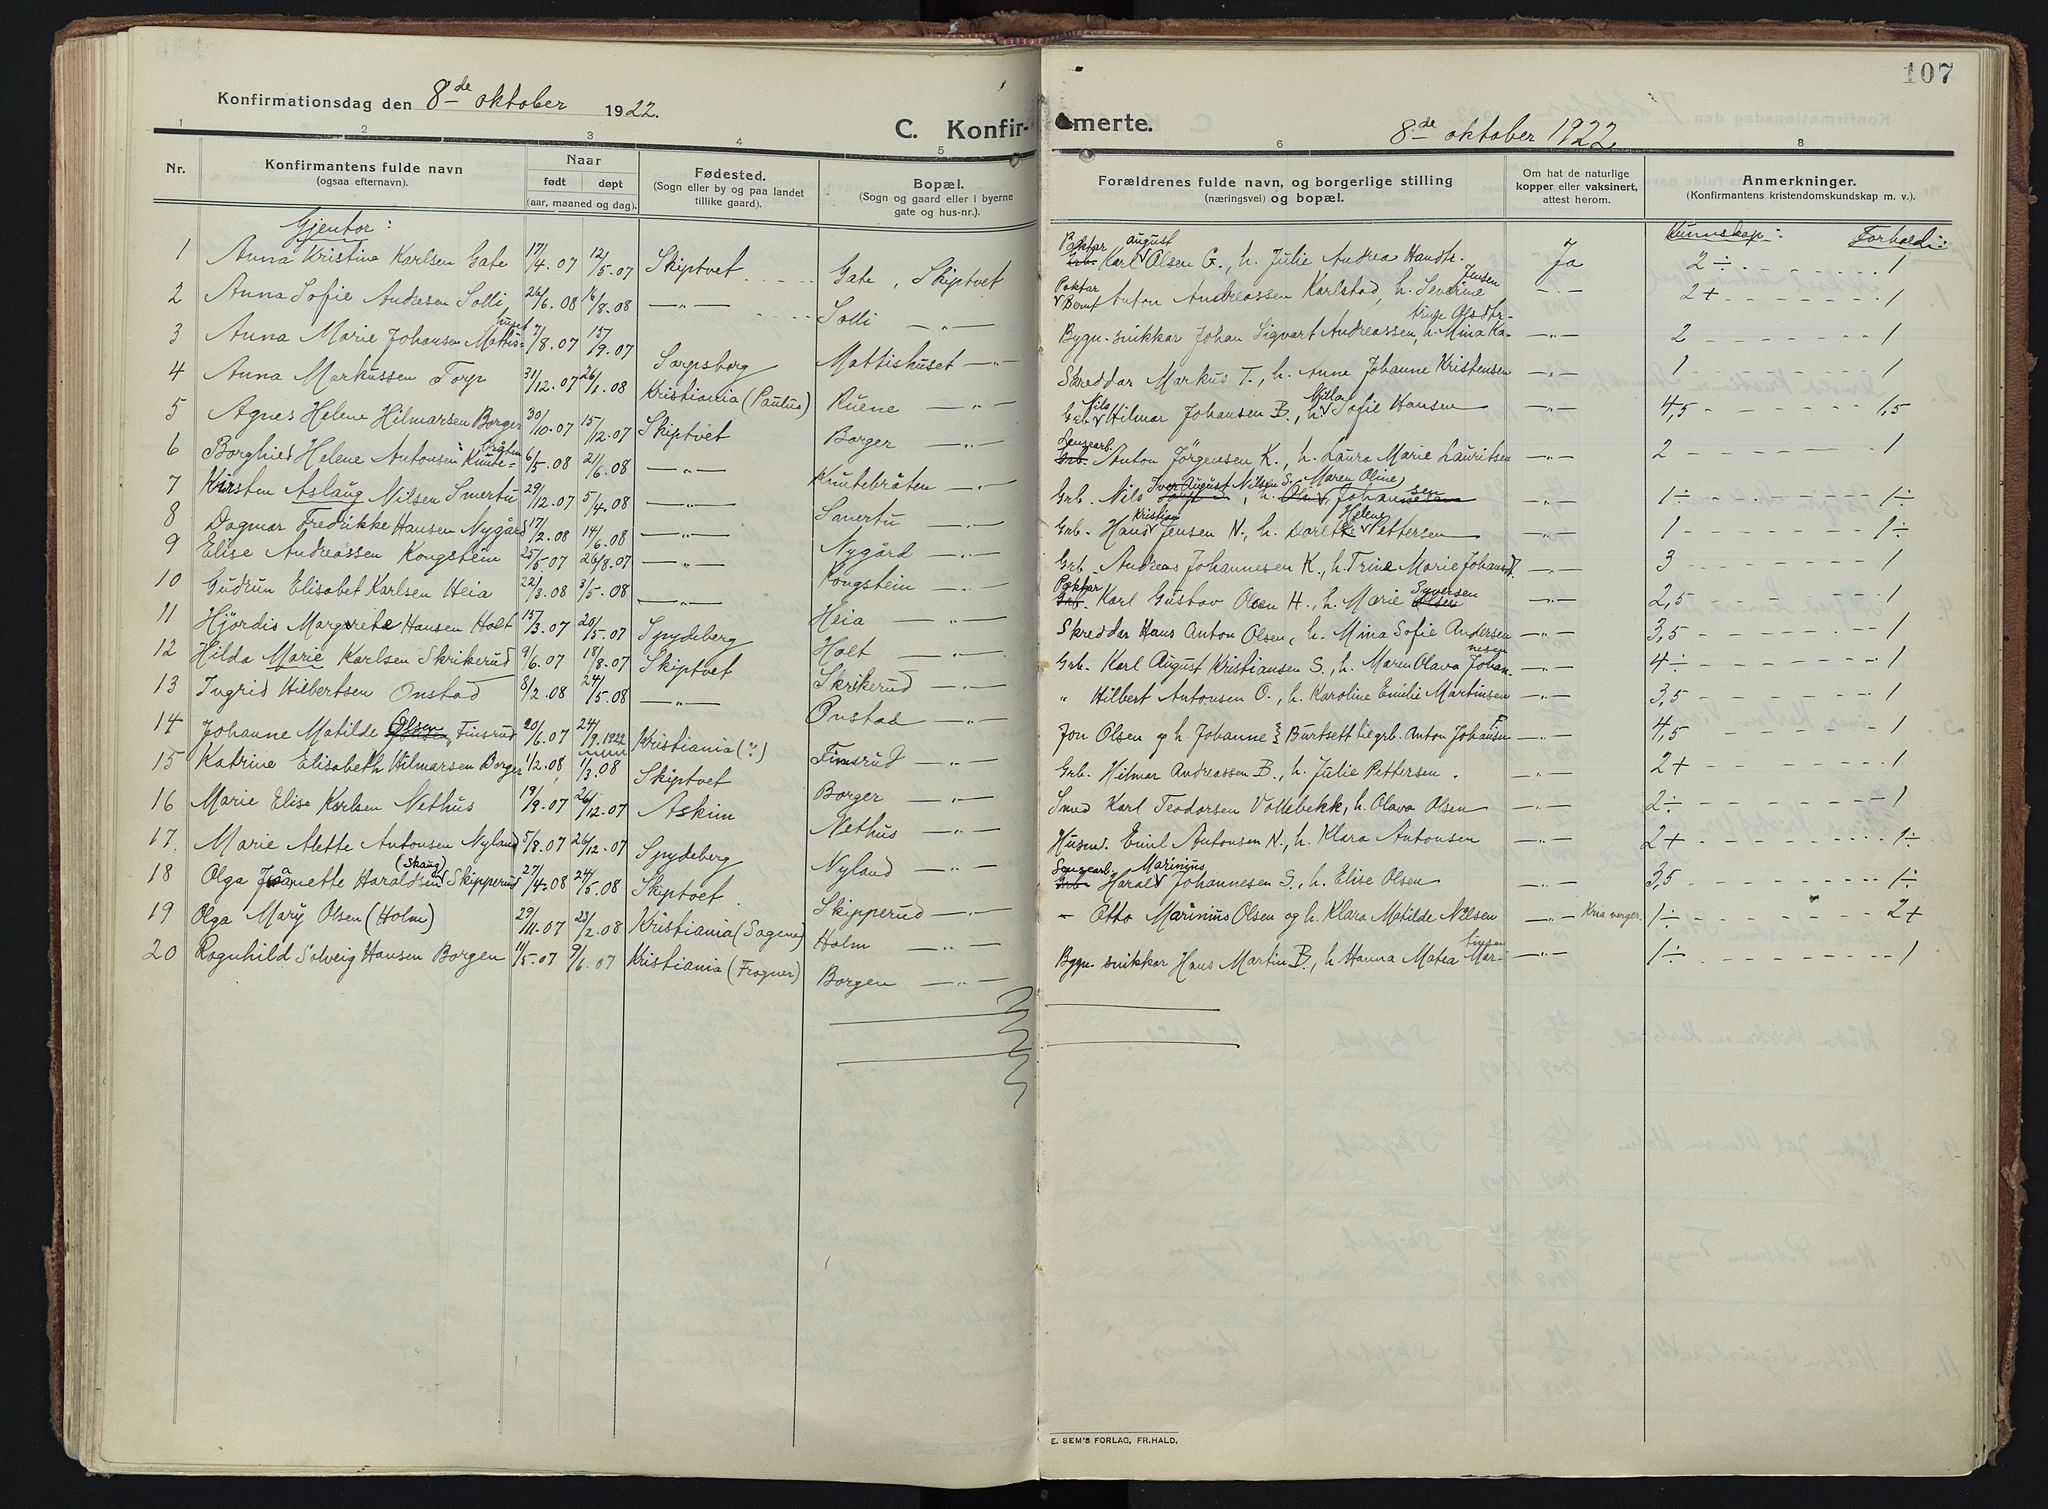 107
Konfirmationsdag den 8de oktober 1922.
C. Konfirmerte.
8de oktober 1922
1 2 3 4 5 6 8
Nr.
Konfirmantens fulde navn (ogsaa efternavn).
Naar født døpt (aar, maaned og dag).
Fødested. (Sogn eller by og paa landet tillike gaard).
Bopæl. (Sogn og gaard eller i byerne gate og hus-nr.).
Forældrenes fulde navn, og borgerlige stilling (næringsvei) og bopæl.
Om hat de naturlige kopper eller vaksinert, attest herom.
Anmerkninger. (Konfirmantens kristendomskundskap m. v.).
Gjentor:
Kunnskap: Forhold:
1 Anna Kristina Karlsen Gate 17/4.07 12/5.07 Skiptvet Gate, Skiptvet Poktar Grb. Karl august Olsen G., h. Julie Andrea Handtr. Ja 2÷ 1
2 Anna Sofie Andresen Solli 26/6.08 16/8.08 —"— Solli —"— Poktar Bernt Anton Andreassen Karlstad, h. Severine Jensen —"— 2+ 1
3 Anna Marie Johansen Mattishuset 7/8.07 15/9.07 Sarpsborg Mattishuset —"— Bygn. snikkar Johan Sigvart Andreassen, h. Mina Katrine Olsdtr. —"— 2 1
4 Anna Markussen Torp 31/12.07 26/1.08 Kristiania (Paulus) Ruene —"— Skreddar Markus T., h. Anne Johanne Kristensen —"— 1 1
5 Agnes Helene Hilmarsen Borger 30/10.07 15/12.07 Skiptvet Borger —"— Grb. Nils Hilmar Johansen B., h. Milla Sofie Hansen —"— 4,5 1,5
6 Borghild Helene Antonsen Knutebråten 6/5.08 21/6.08 —"— Knutebråten —"— Grb. Anton Jørgensen K., h. Laura Marie Lauritsen —"— 2 1
7 Kirsten Aslaug Nilsen Smertu 29/12.07 5/4.08 —"— Smertu —"— Grb. Nils Iver August Nilsen S., h. Maren Oline Johannesen —"— 1÷ 1÷
8 Dagmar Fredrikke Hansen Nygård 17/2.08 14/6.08 —"— Nygård —"— Grb. Hans Kristian Jensen N., h. Dorett Helene Pettersen —"— 1 1÷
9 Elise Andreassen Kongstein 25/5.07 26/8.07 —"— Kongstein —"— Grb. Andreas Johannesen K., h. Trine Marie Johansdt. —"— 3 1
10 Gudrun Elisabet Karlsen Heia 22/3.08 3/5.08 —"— Heia —"— Poktar Grb. Karl Gustav Olsen H., h. Marie Syversen Olsen —"— 2,5 1
11 Hjördis Margrete Hansen Holt 15/3.07 20/5.07 Spydeberg Holt —"— Skreddar Hans Anton Olsen, h. Mina Sofie Andersen —"— 3,5 1
12 Hilda Marie Karlsen Skrikerud 9/6.07 18/8.07 Skiptvet Skrikerud —"— Grb. Karl August Kristiansen S., h. Maren Olava Johannesen —"— 4÷ 1
13 Ingrid Hilbertsen Onstad 8/2.08 24/5.08 —"— Onstad —"— " Hilbert Antonsen O., h. Karoline Emilie Martinsen —"— 3,5 1
14 Johanne Matilde Olsen, Finsrud 20/6.07 24/9.1922 Kristiania (?) Finsrud —"— Jon Olsen og h. Johanne } Burtsett til grb. Anton Johansen F. —"— 4,5 1
15 Katrine Elisabeth Hilmarsen Borger 1/2.08 1/3.08 Skiptvet Borger —"— Grb. Hilmar Andreassen B., h. Julie Pettersen. —"— 2+ 1
16 Marie Elise Karlsen Nethus 19/9.07 26/12.07 Askim Nethus —"— Smed Karl Teodorsen Vollebekk, h. Olava Olsen —"— 2÷ 1
17. Marie Alette Antonsen Nyland 5/8.07 26/12.07 Spydeberg Nyland —"— Husmd. Emil Antonsen N., h. Klara Antonsen —"— 2+ 1÷
18 Olga Janette Haraldsen (Skaug) Skipperud 27/4.08 24/5.08 Skiptvet. Skipperud —"— Grb. Harald Marinius Johannesen S., h. Elise Olsen —"— 3,5 1÷
19 Olga Mary Olsen (Holm) 29/11.07 23/2.08 Kristiania (Sagene) Holm —"— – Otto Marinius Olsen og h. Klara Matilde Nilsen —"— Kria verger. 1÷ 2+
20 Ragnhild Solveig Hansen Borgen 11/5.07 9/6.07 Kristiania (Frogner) Borgen —"— Bygn. snikkar Hans Martin B., h. Hanna Matea Martinsen —"— 1÷ 1
E. SEM'S FORLAG, FR.HALD.